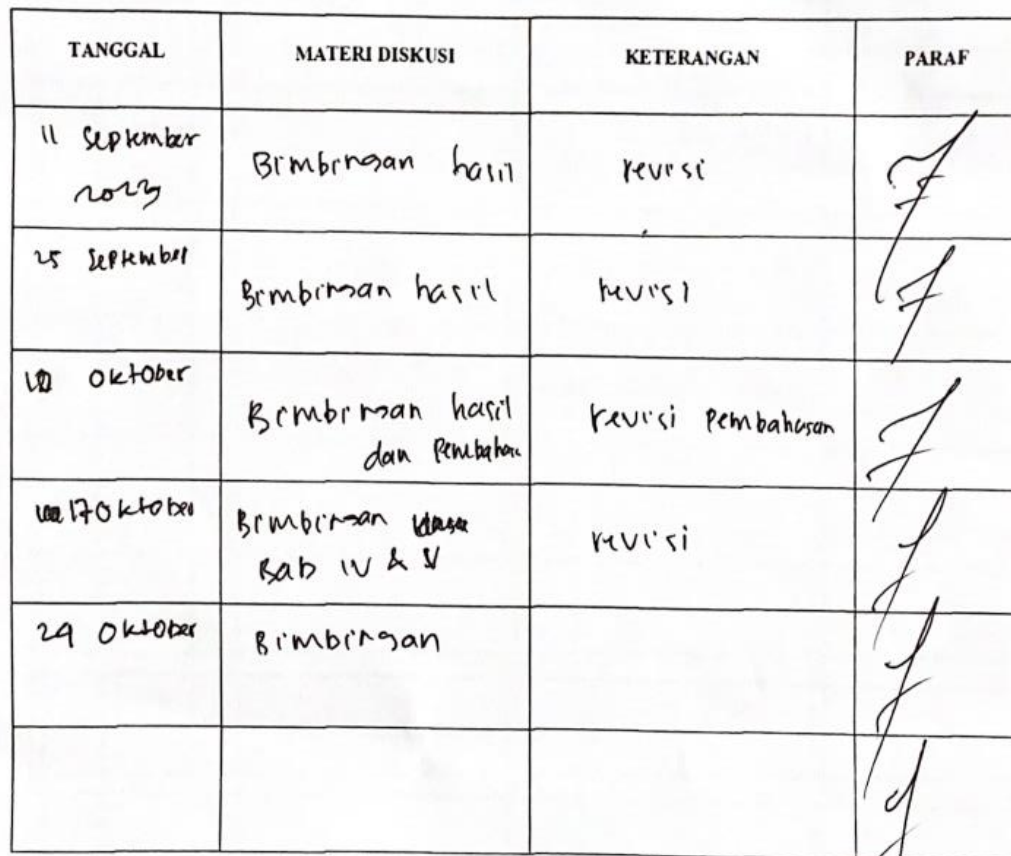 TANGGAL MATERI DISKUSI KETERANGAN PARAF
11 September
2023
Bimbingan hasil
revisi
25 September
Bimbingan hasil
revisi
Oktober
Bimbingan hasil
dan Pembahasan
revisi Pembahasan
17 Oktober
Bimbingan
Bab IV & V
revisi
24 Oktober
Bimbingan